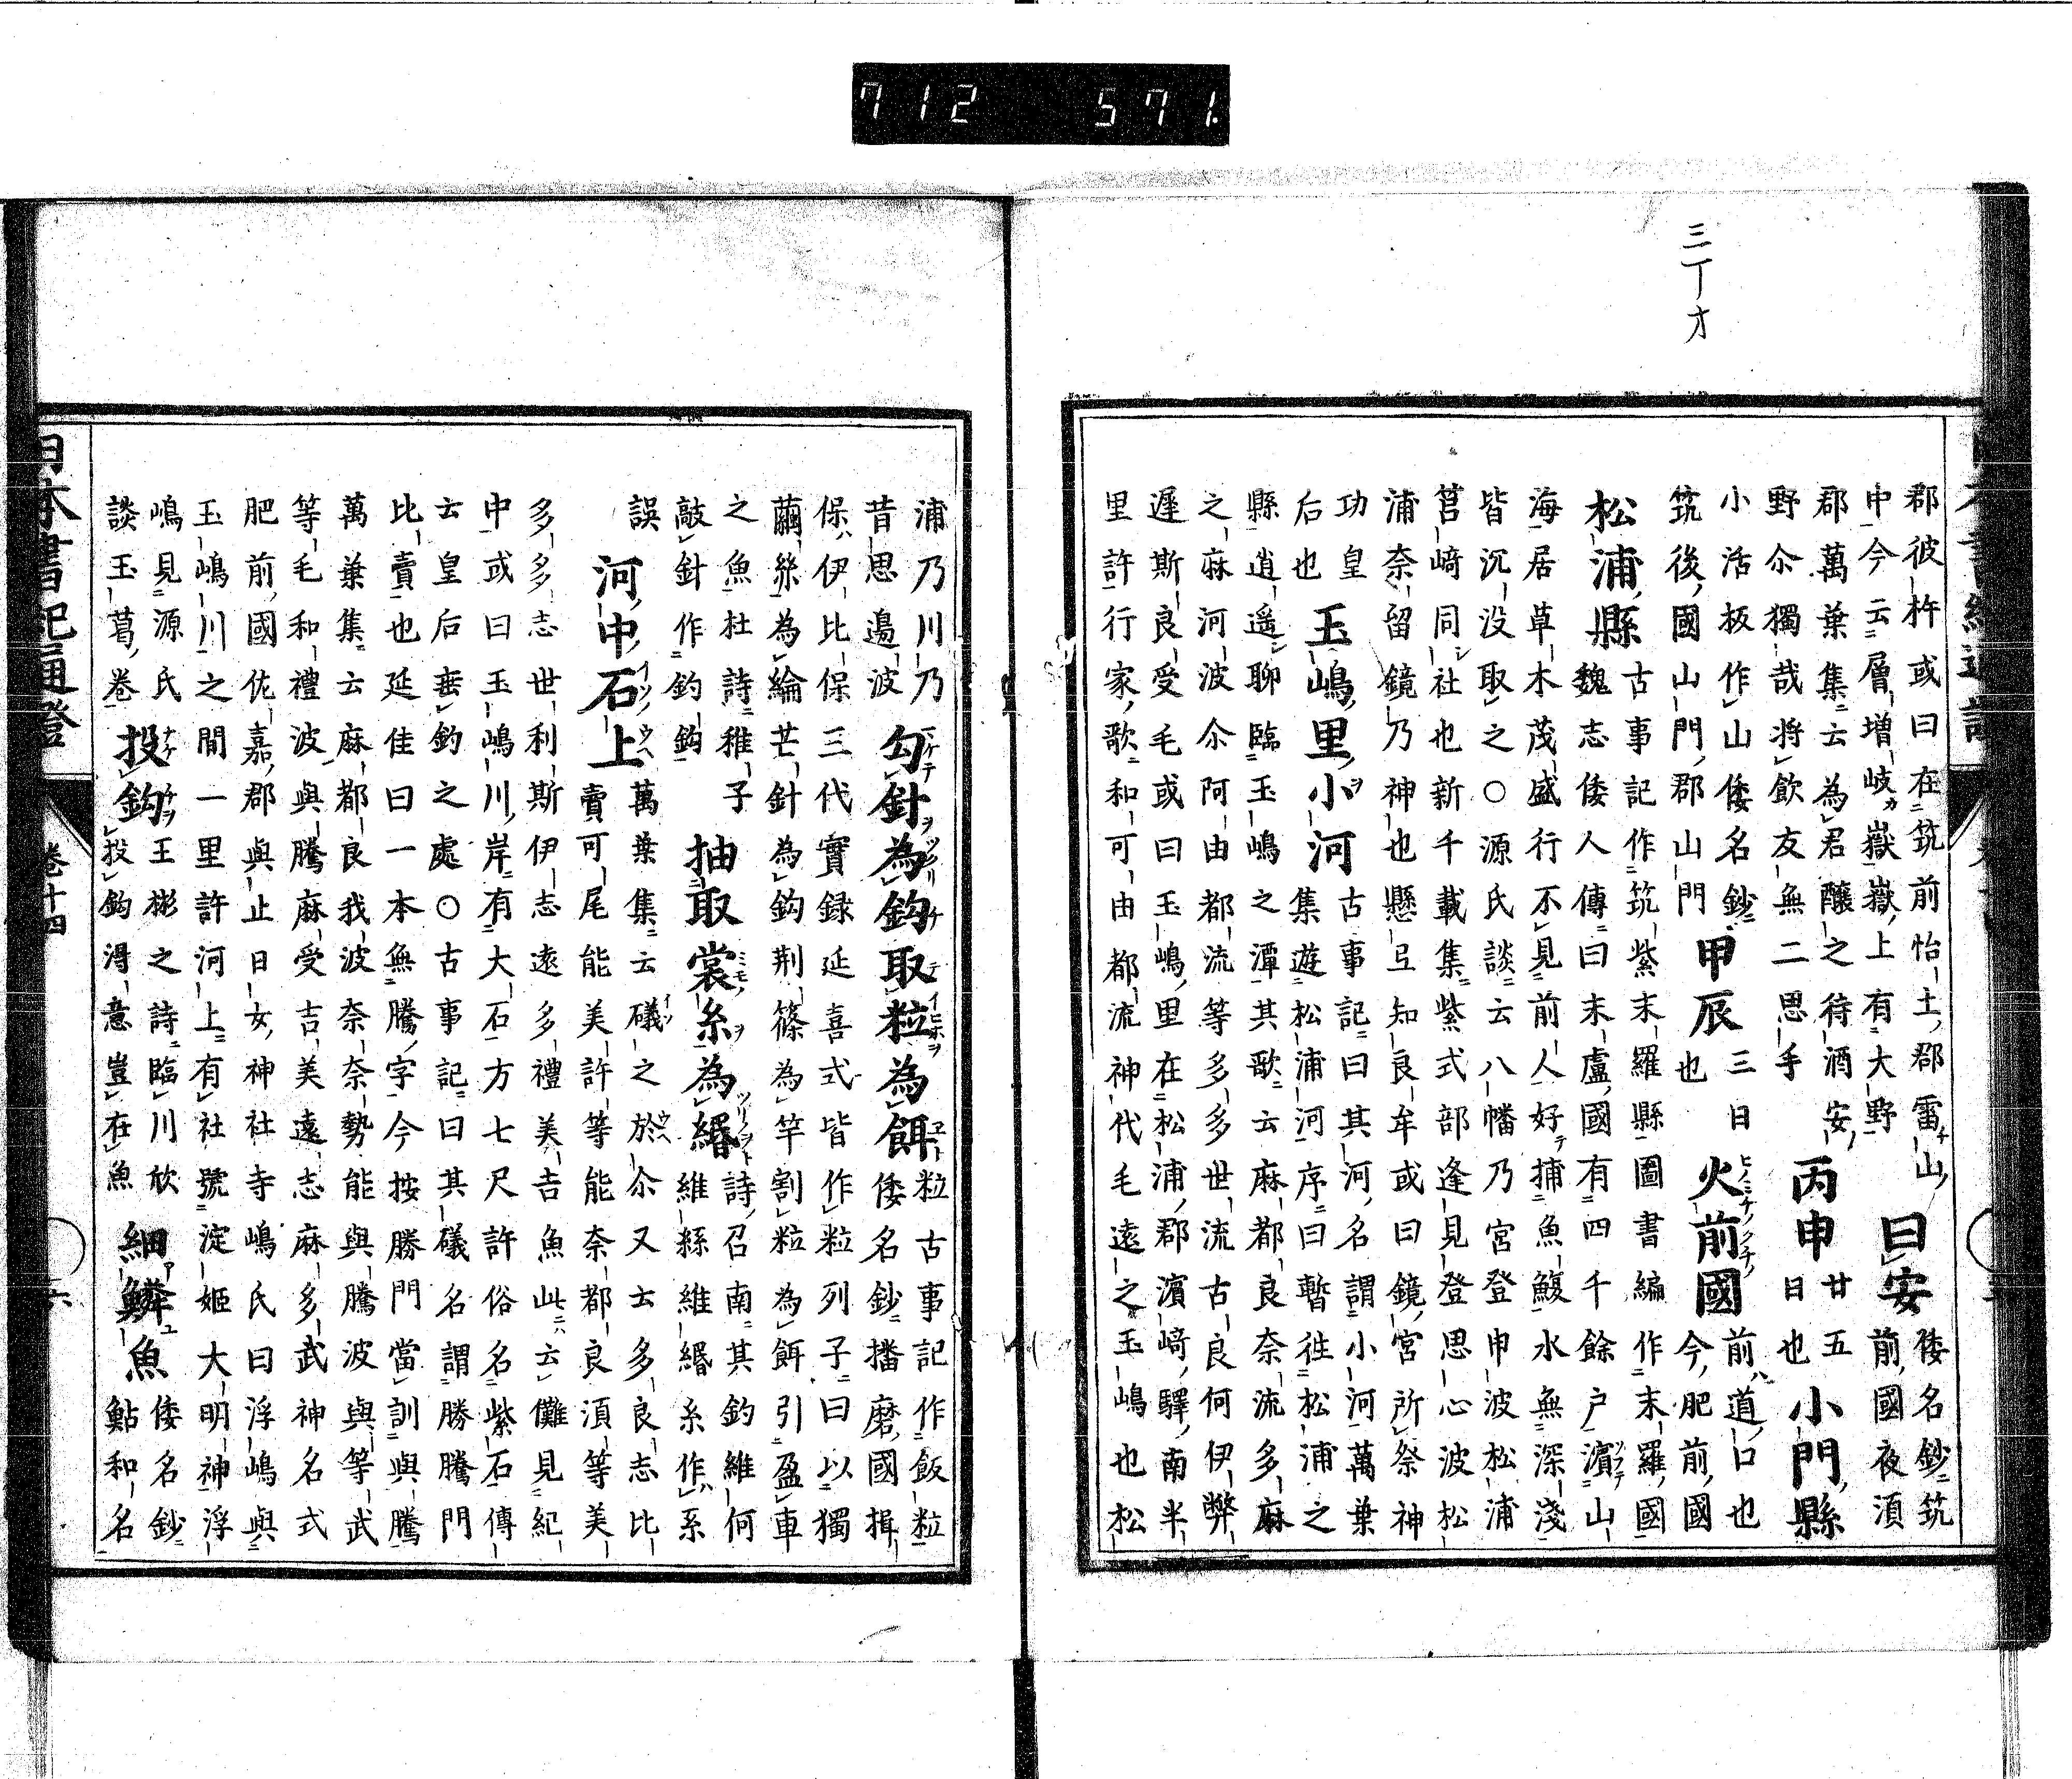 712 571.
三丁オ
郡彼杵或曰在筑前怡土郡雷山
曰安
倭名鈔筑
中今云層増岐嶽嶽上有大野
前國夜須
郡萬葉集云為君釀之待酒安
丙申
廿五
小門縣
野尒獨哉將飲友無二思手
日也
小活板作山倭名鈔
甲辰
三日
火前國
前道口也
筑後國山門郡山門
也
今肥前國
松浦縣
古事記作筑紫末羅縣圖書編作末羅國
魏志倭人傳曰末盧國有四千餘户濱山
海居草木茂盛行不見前人好捕魚鰒水無深淺
皆沉没取之○源氏談云八幡乃宮登申波松浦
筥﨑同社也新千載集紫式部逢見登思心波松
浦奈留鏡乃神也懸弖知良牟或曰鏡宮所祭神
功皇
玉嶋里小河
古事記曰其河名謂小河萬葉
后也
集遊松浦河序曰暫徃松浦之
縣逍遥聊臨玉嶋之潭其歌云麻都良奈流多麻
之麻河波尒阿由都流等多多世流古良何伊弊
遲斯良受毛或曰玉嶋里在松浦郡濱﨑驛南半
里許行家歌和可由都流神代毛遠之玉嶋也松
浦乃川乃
勾針為鈎取粒為餌
粒古事記作飯粒
昔思邉波
倭名鈔播磨國揖
保伊比保三代實録延喜式皆作粒列子曰以獨
繭絲為綸芒針為鈎荆篠為竿割粒為餌引盈車
之魚杜詩稚子
抽取裳糸為緡
詩召南其釣維何
敲針作釣鈎
維絲維緡糸作系
誤
河中石上
萬葉集云礒之於尒又云多良志比
賣可尾能美許等能奈都良須等美
多多志世利斯伊志遠多禮美吉魚此云儺見紀
中或曰玉嶋川岸有大石方七尺許俗名紫石傳
云皇后垂釣之處○古事記曰其礒名謂勝騰門
比賣也延佳曰一本無騰字今按勝門當訓與騰
萬葉集云麻都良我波奈奈勢能與騰波與等武
等毛和禮波與騰麻受吉美遠志麻多武神名式
肥前國佐嘉郡與止日女神社寺嶋氏曰浮嶋與
玉嶋川之間一里許河上有社號淀姫大明神浮
嶋見源氏
投鈎
王彬之詩臨川欣
細鱗魚
倭名鈔
談玉葛卷
投鈎得意豈在魚
鮎和名
日本書紀通證
卷十四
六